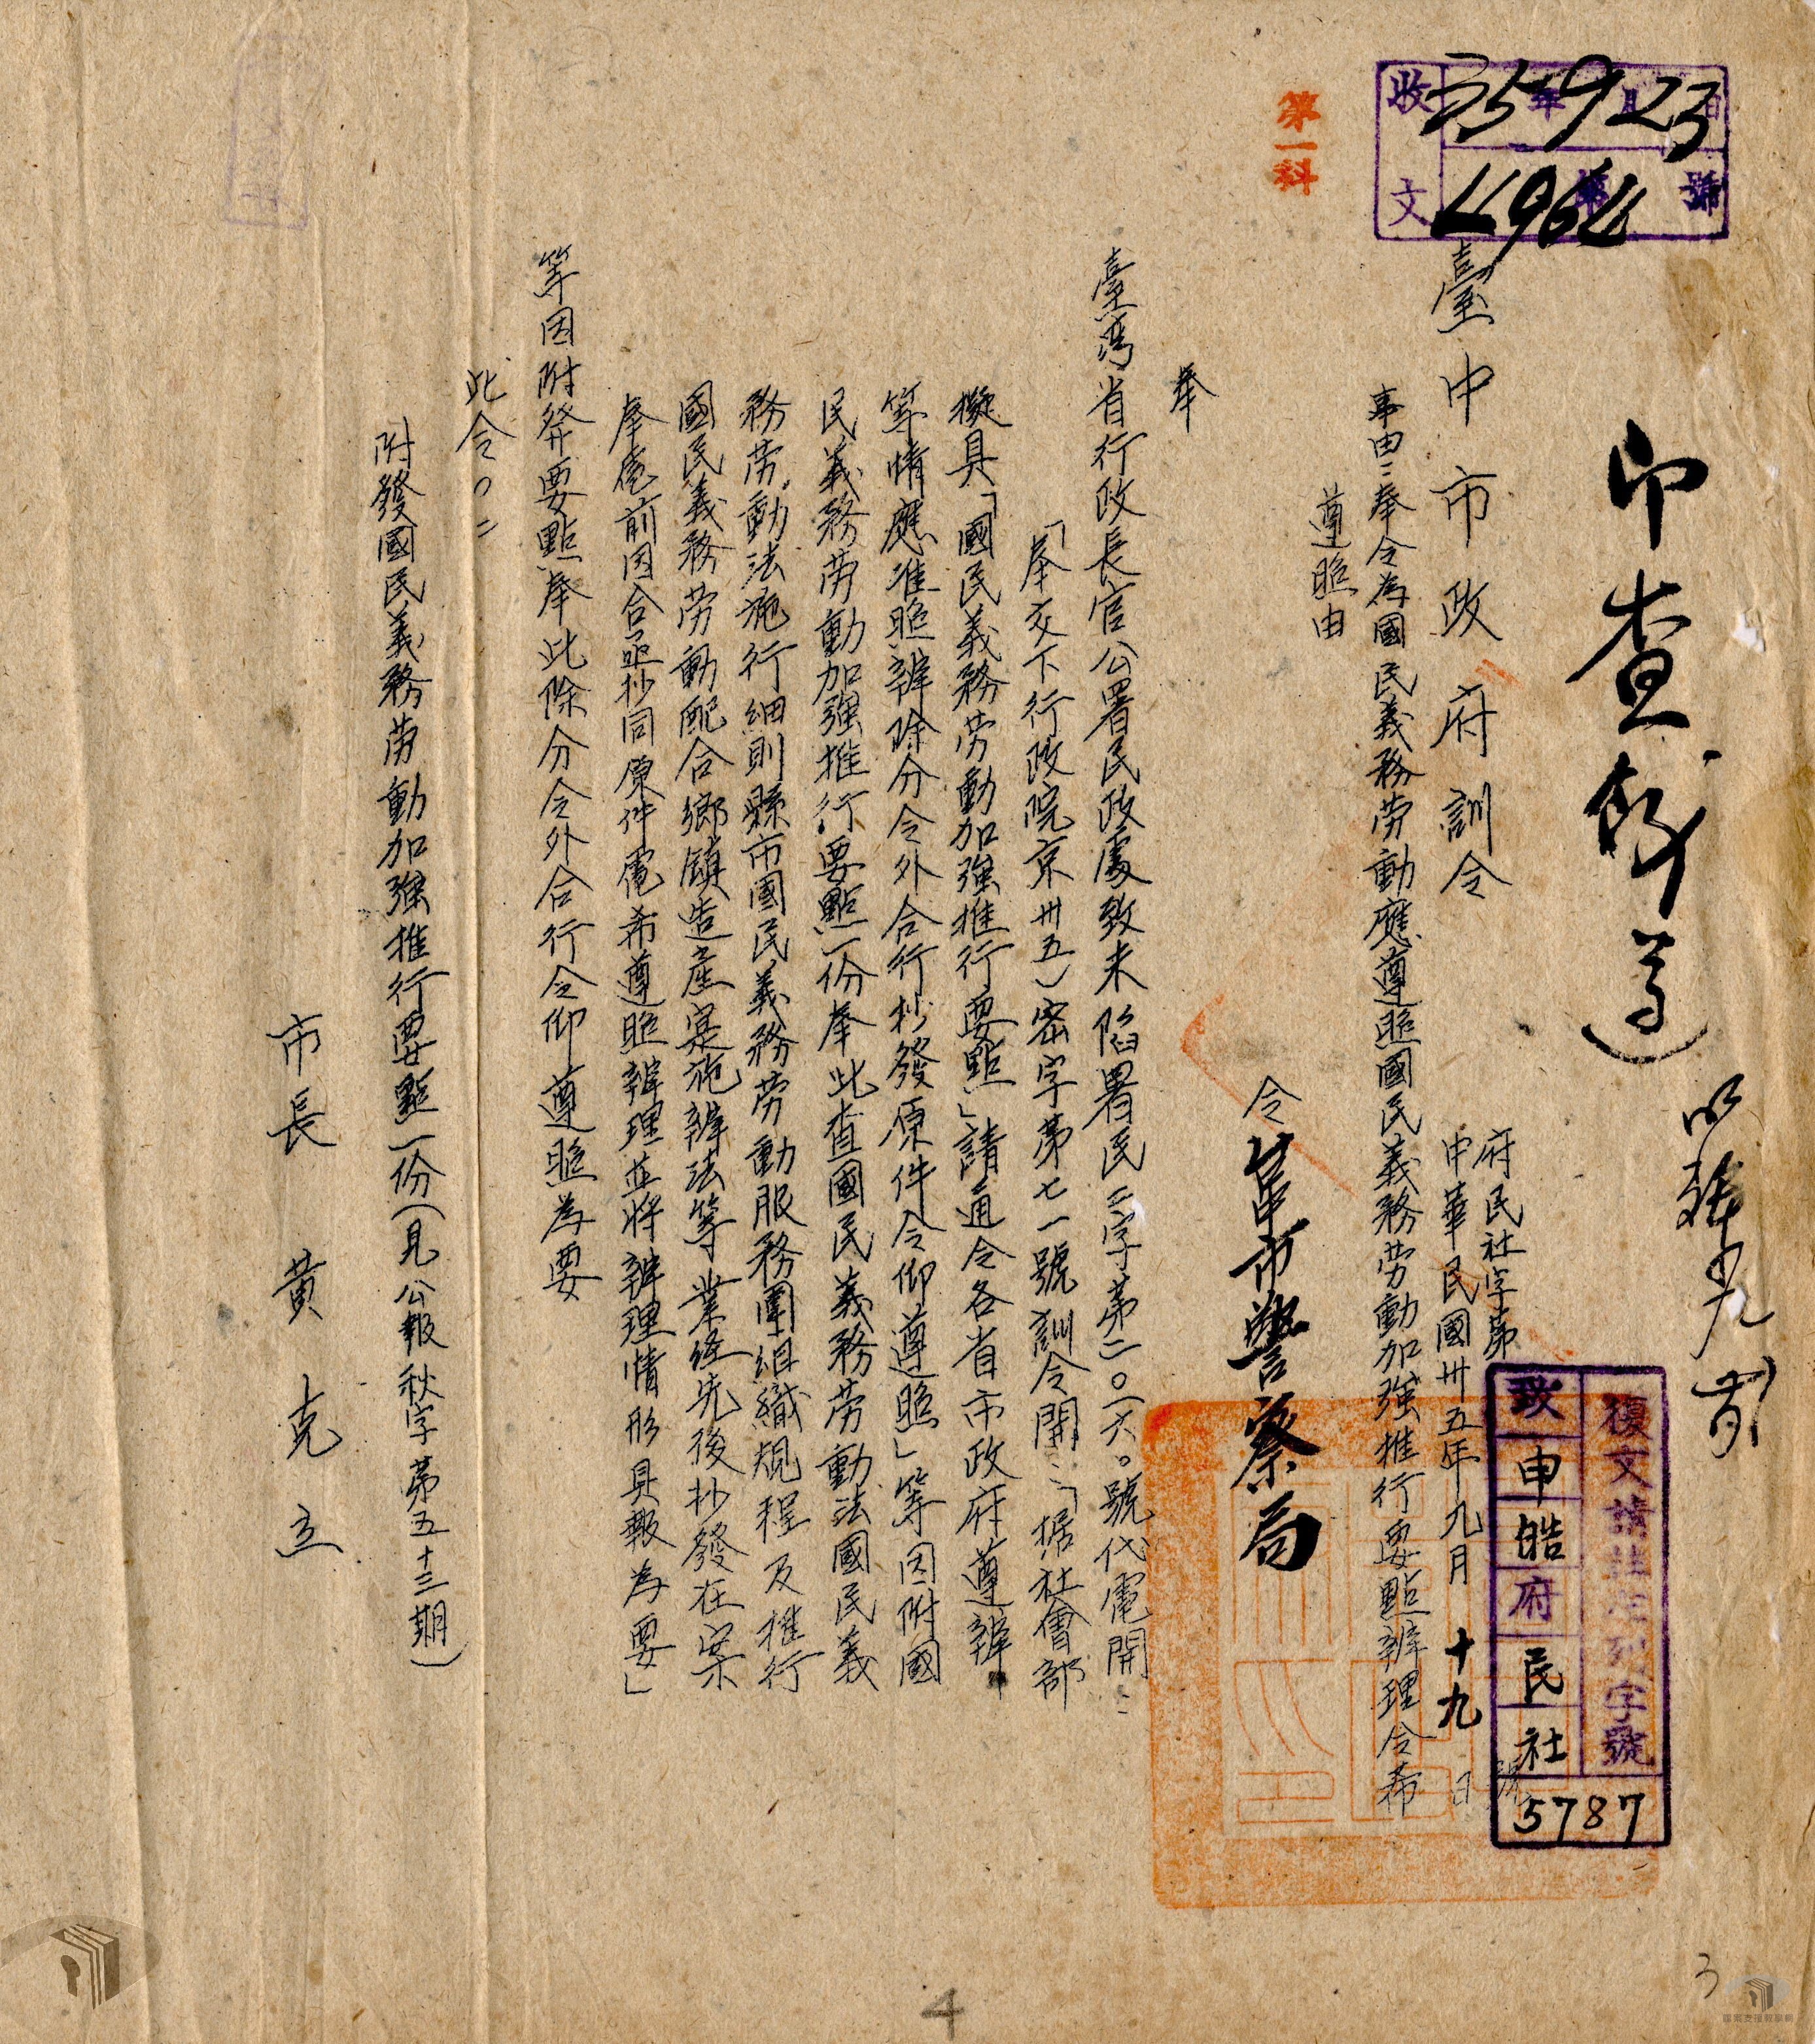 印查存
臺中市政府訓令
府民社字第 號
中華民國卅五年九月十九日
事由：奉令為國民義務劳動應遵照國民義務劳動加強推行要點辦理令希
遵照由
令臺中市警察局
奉
臺灣省行政長官公署民政處致未陷署民㈢字第二〇一六〇號代電開：
「奉交下行政院京卅五）密字第七一號訓令開：「据社會部
擬具「國民義務劳動加強推行要點」請通令各省市政府遵辦
等情應准照辦除分令外合行抄發原件令仰遵照」等因附國
民義務劳動加強推行要點一份奉此查國民義務劳動法國民義
務劳動法施行細則縣市國民義務劳動服務團組織規程及推行
國民義務劳動配合鄉鎮造產寔施辦法等業經先後抄發在案
奉電前因合亟抄同原件電希遵照辦理並将辦理情形具報為要」
等因附發要點奉此除分令外合行令仰遵照為要
此令。：
附發國民義務劳動加強推行要點一份（見公報秋字第五十三期）
市長黃克立
收文 35年9月23日
第4964號
第一科
復文請註左列字號
致申皓府民社
5787
3
4
檔案支援教學網